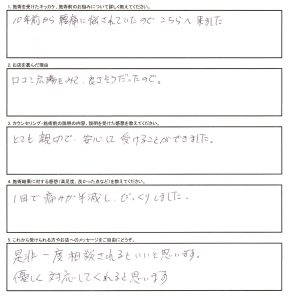 1. 施術を受けたキッカケ、施術前のお悩みについて詳しく教えてください。
10年前から腰痛に悩されていたのでこちらへ来ました
2. お店を選んだ理由
口コミ広場をみて、良さそうだったので。
3. カウンセリング・施術前の説明の内容、説明を受けた感想を教えてください。
とても親切で、安心に受けることができました。
4. 施術結果に対する感想(満足度、良かった点など)を教えてください。
1回で痛みが半減し、びっくりしました。
5. これから受けられる方やお店へのメッセージをご自由にどうぞ。
是非一度相談されるといいと思います。
優しく対応してくれると思います